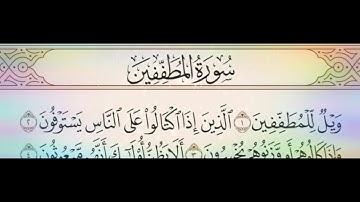 سُورَةُ المُطَفِّفِينَ
وَيْلٌ لِّلْمُطَفِّفِينَ ١ الَّذِينَ إِذَا اكْتَالُوا عَلَى النَّاسِ يَسْتَوْفُونَ ٢
وَإِذَا كَالُوهُمْ أَو وَّزَنُوهُمْ يُخْسِرُونَ ٣ أَلَا يَظُنُّ أُولَٰئِكَ أَنَّهُم مَّبْعُوثُونَ ٤